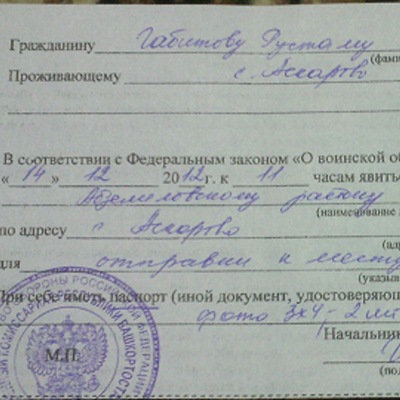 Гражданину Габитову Рустаму
(фами
Проживающему с. Аскарово
В соответствии с Федеральным законом «О воинской об
« 14 » 12 2012 г. к 11 часам явить
Абзелиловскому району
(наименование
по адресу с Аскарово
(ад
для отправки к месту
(указы
При себе иметь паспорт (иной документ, удостоверяющ
фото 3х4-2шт
Начальник
М.П.
(по